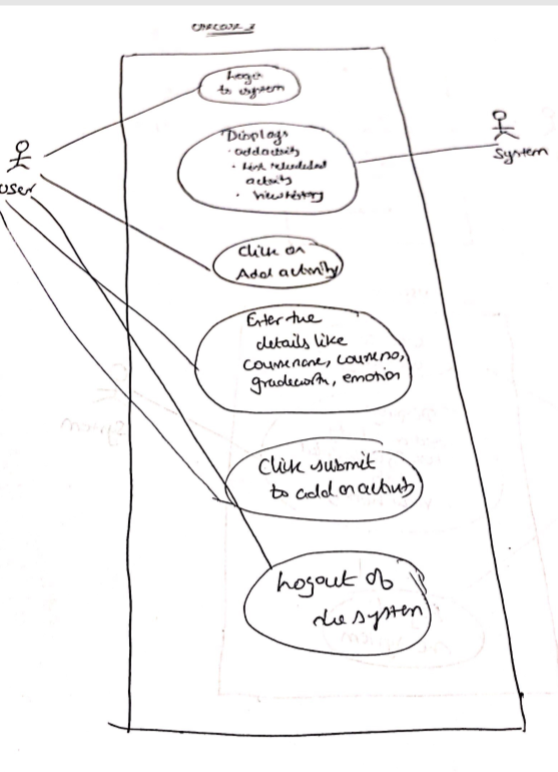 USECASE 3
Login
to system
Displays
· add activity
· List scheduled
activity
· View history
System
user
Click on
Add activity
Enter the
details like
coursename, courseno,
gradeworth, emotion
Click submit
to add an activity
Logout of
the system